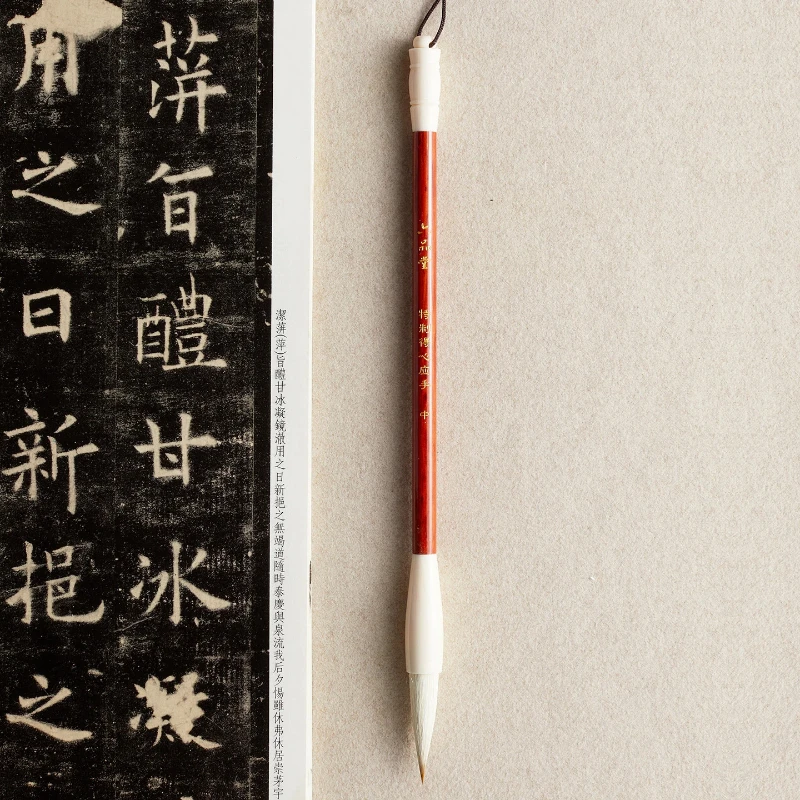 萍旨醴甘冰凝
用之日新挹之
潔萍(萍)旨醴甘冰凝鏡澈用之日新挹之無竭道隨時泰慶與泉流我后夕惕雖休弗休居崇茅宇
品堂
特制得心应手 中